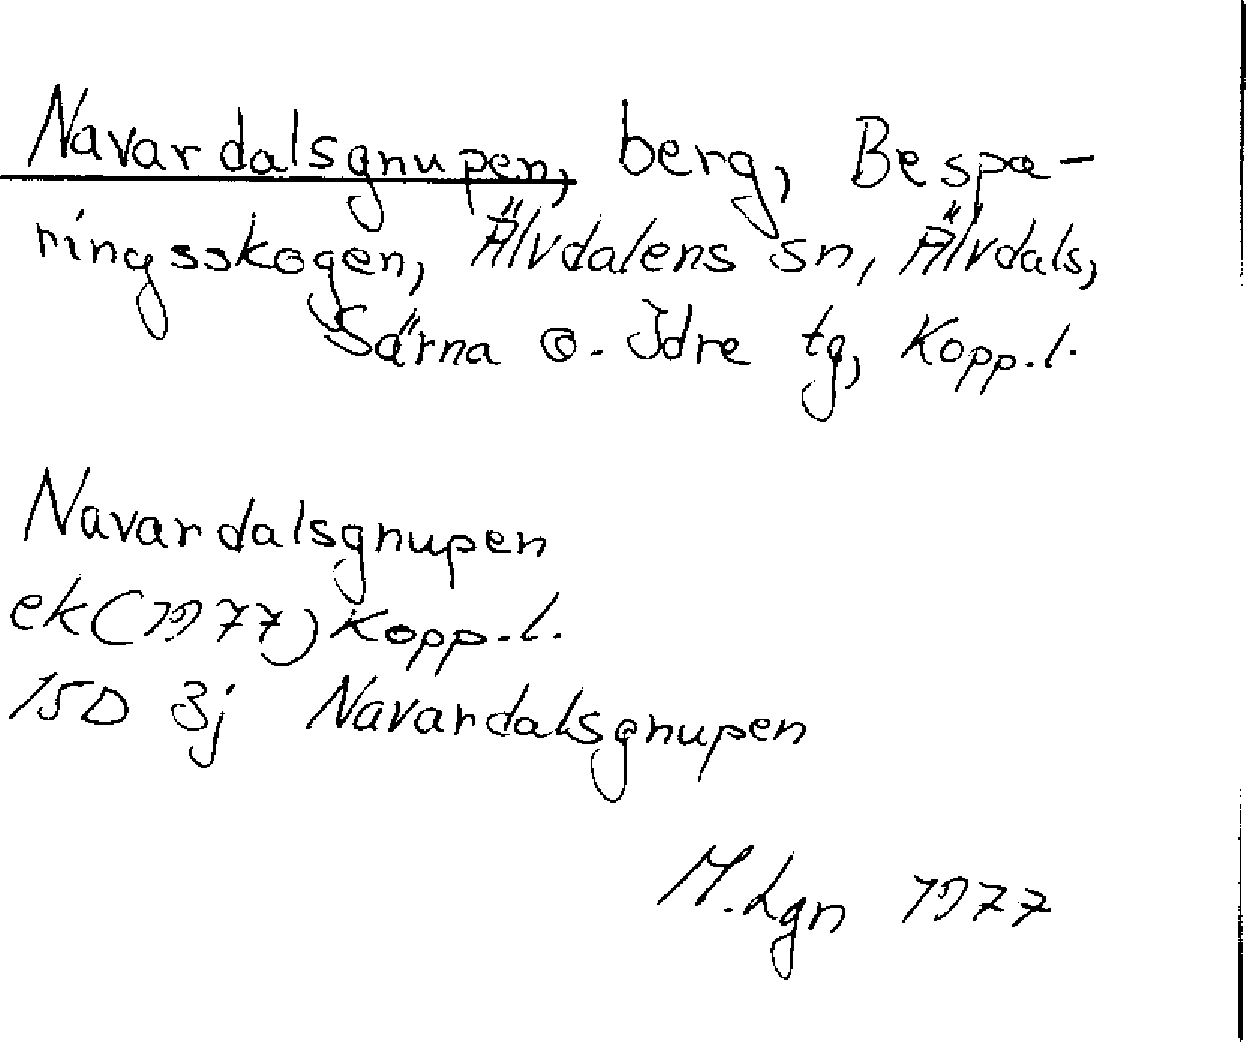 Navardalsgnupen, berg, Bespa-
ringsskogen, Älvdalens sn, Älvdals,
Särna o. Idre tg, Kopp.l.
Navardalsgnupen
ek(1977) Kopp.l.
15D 3j Navardalsgnupen
M.Lgn 1977